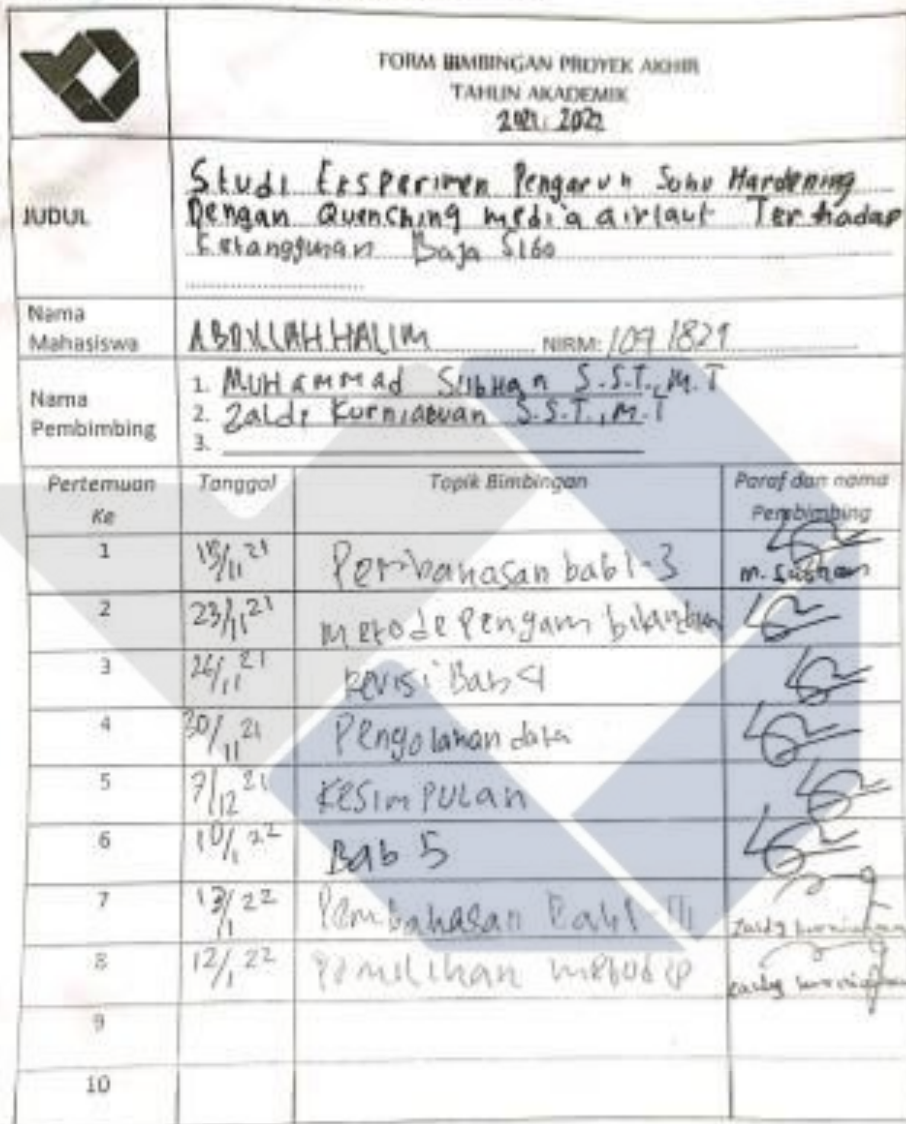 FORM BIMBINGAN PROYEK AKHIR
TAHUN AKADEMIK
2021. 2022
JUDUL
Studi Eksperimen Pengaruh Suhu Hardening
Dengan Quenching media air laut Terhadap
Ketangguhan Baja 5160
Nama Mahasiswa
ABDULLAH HALIM NIRM: 109 1829
Nama Pembimbing
1. MUHAMMAD SUBHAN S.S.T., M.T
2. Zaldy Kurniawan S.S.T., M.T
3.
Pertemuan Ke Tanggal Topik Bimbingan Paraf dan nama Pembimbing
1 15/11 21 Pembahasan bab 1-3 M. Subhan
2 23/11 21 metode Pengambilan
3 26/11 21 revisi Bab 4
4 30/11 21 Pengolahan data
5 7/12 21 KESIMPULAN
6 10/1 22 Bab 5
7 13/1 22 Pembahasan Bab I-III Zaldy Kurniawan
8 12/1 22 Pemilihan metode Zaldy Kurniawan
9
10